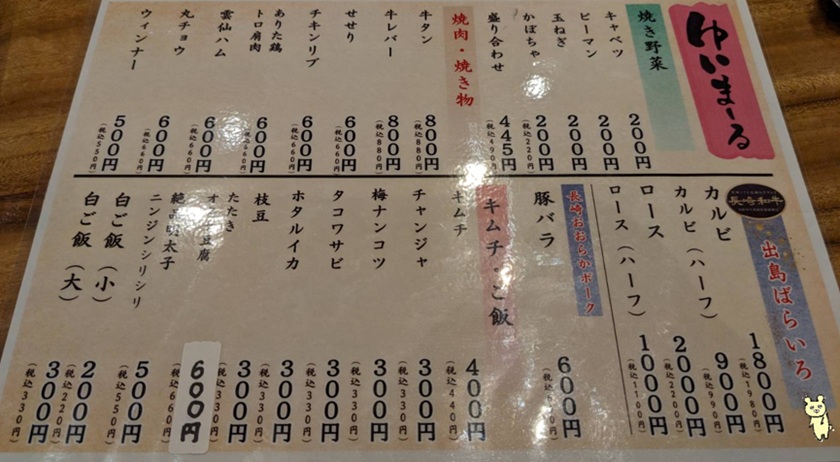 ゆいまーる
焼き野菜
キャベツ 200円
ピーマン 200円
玉ねぎ 200円
かぼちゃ 200円 (税込220円)
盛り合わせ 445円 (税込490円)
焼肉・焼き物
牛タン 800円 (税込880円)
牛レバー 800円 (税込880円)
せせり 600円 (税込660円)
チキンリブ 600円 (税込660円)
ありた鶏
トロ肩肉 600円 (税込660円)
雲仙ハム 600円 (税込660円)
丸チョウ 600円 (税込660円)
ウィンナー 500円 (税込550円)
長崎和牛
出島ばらいろ
カルビ 1800円 (税込1980円)
カルビ(ハーフ) 900円 (税込990円)
ロース 2000円 (税込2200円)
ロース(ハーフ) 1000円 (税込1100円)
長崎おおらかポーク
豚バラ 600円
キムチ・ご飯
キムチ 400円 (税込440円)
チャンジャ 300円 (税込330円)
梅ナンコツ 300円 (税込330円)
タコワサビ 300円 (税込330円)
ホタルイカ 300円 (税込330円)
枝豆 300円 (税込330円)
たたき
豆腐 300円 (税込330円)
明太子 600円 (税込660円)
ニンジンシリシリ 500円 (税込550円)
白ご飯(小) 200円 (税込220円)
白ご飯(大) 300円 (税込330円)